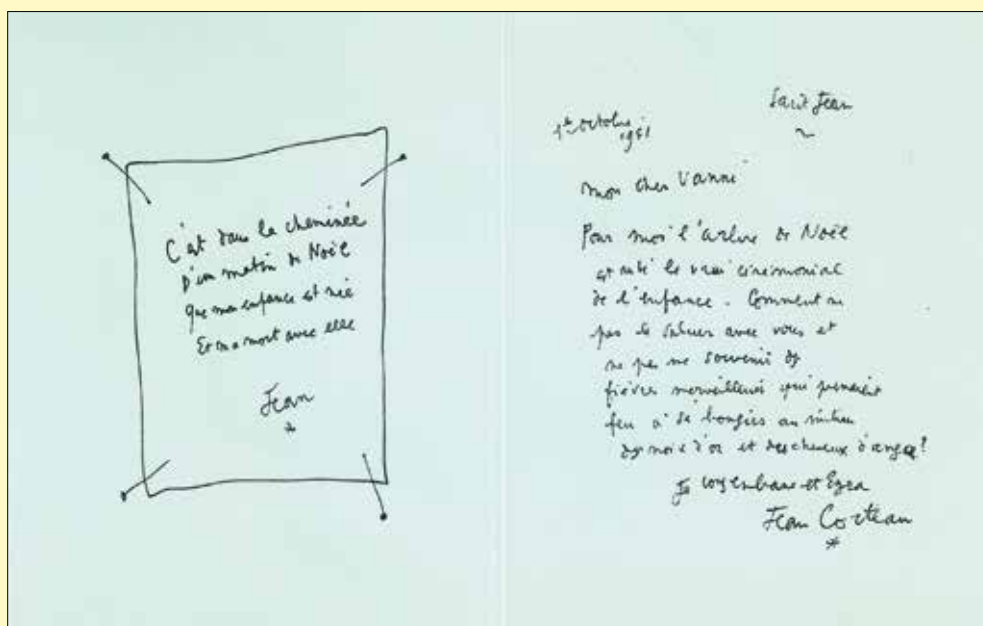 C'est dans la cheminée
D'un matin de Noël
Que mon enfance est née
Et ma mort avec elle
Jean
Saint Jean
1er octobre
1961
mon cher Vanni
Pour moi l'arbre de Noël
est resté le vrai cérémonial
de l'enfance. Comment ne
pas le saluer avec vous et
ne pas me souvenir des
fièvres merveilleuses qui prenaient
feu à de bougies au milieu
des noix d'or et des cheveux d'anges?
Je vous embrasse et
Jean Cocteau